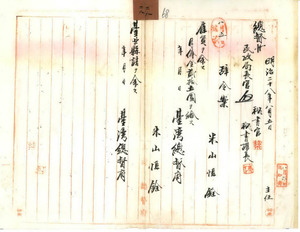 明治二十八年八月五日
主任
總督
民政局長官
秘書官
秘書課長
辞令案
米山恒銓
雇員ヲ命ス
月俸金貳拾五圓ヲ給ス
年月日
臺灣總督府
米山恒銓
臺北縣詰ヲ命ス
年月日
臺灣總督府